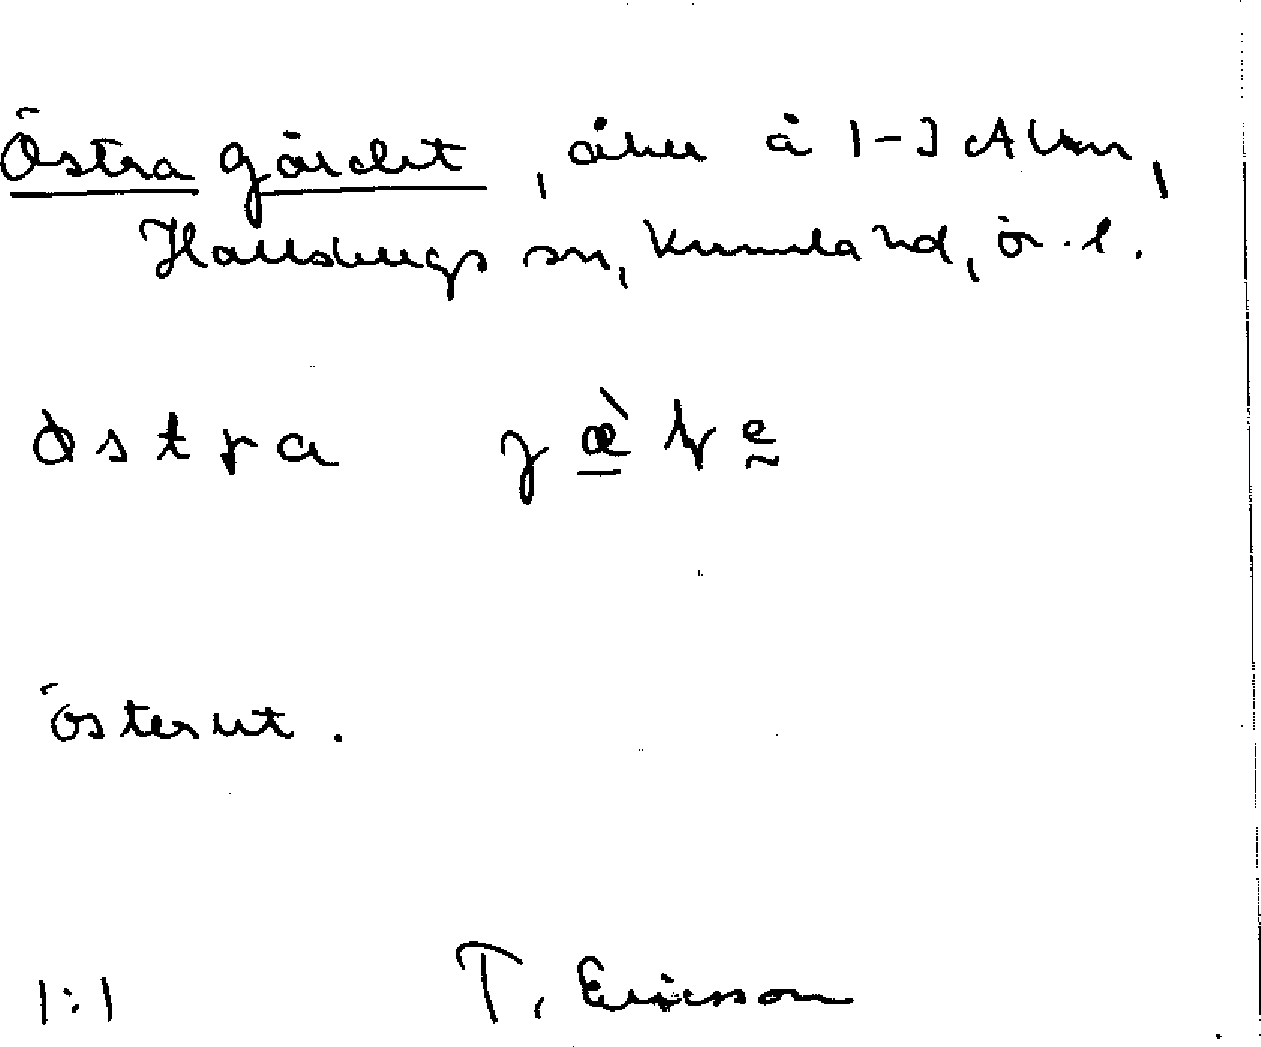 Östra gärdet, åker å 1-3 Alven,
Hallsbergs sn, Kumla hd, ör. l.
östra
österut.
1:1 T. Ericsson